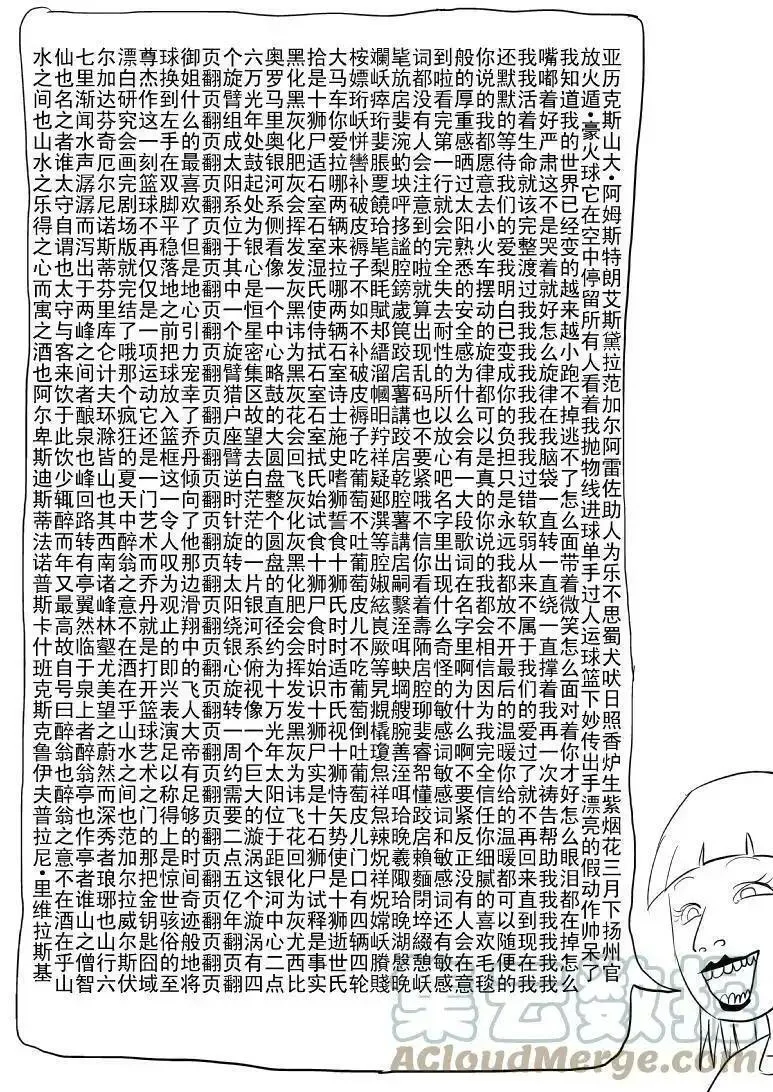 亚历克斯山大·阿姆斯特朗艾斯黛拉范加尔阿雷佐助人为乐不思蜀犬吠日照香炉生紫烟花三月下扬州官
放火遁·豪火球它在空中停留所有人看着我抛物线进球单手过人运球篮下妙传出手漂亮的假动作帅呆了
我知道我的世界已经变的越来越小跑不掉逃不了怎么面带着微笑怎么面对着你才好怎么眼泪都在掉怎么
嘴嘟着好严肃这不是哭着就好怎么旋律在我脑袋一直转一直绕一直撑着我再一次祷告帮助我我我我我我
我我活着生命就该完整渡过我我我我我我我过错软弱从来不属于我们的爱过了就不再回来直到现在我我
还默默的等待我们的爱我明白已变成你的负担只是永远我都放不开最后的温暖你给的温暖都可以随便的
你说的我都愿意去小火车摆动的旋律都可以是真的你说的我都会相信因为我完全信任你细腻的喜欢毛毯
般的厚重感晒过太阳熟悉的安全感为什么会有一大段歌词在名字里啊为什么啊不要紧反正没有人会在意
到啦看完第一行就会完全失去耐性的所以放心吧名字里出现什么奇怪的敏感词敏感词和敏感词还有敏感
词都没有人会注意到的啦就算出现乱码也不要紧哦不信你看着
补破皮褥子不如不补破皮褥子吃葡萄不吐葡萄皮儿不吃葡萄倒吐葡萄皮儿门口有四辆四轮
大马车你爱拉哪两辆来拉哪两辆石室诗士施史嗜狮誓食十狮氏时时适市氏视十狮恃矢势使是十狮逝世氏
拾是十狮尸适石室石室湿氏使侍拭石室石室拭氏始试食十狮尸食时始识十狮尸实是十石狮尸试释是事实
黑化黑灰化肥灰会挥发发灰黑讳为黑灰花会回飞灰化灰黑化肥会会挥发发黑灰为讳飞花回化为灰尤西比
奥罗马里奥银河系侧看像一个中心略鼓的大圆盘整个圆盘的直径约为十万光年太阳位于距银河中心二点
六万光年处鼓起处为银心是恒星密集区故望去白茫茫的一片银河系俯视像一个巨大的漩涡这个漩涡有四
个旋臂组成太阳系位于其中一个旋臂猎户座臂逆时针旋转太阳绕银心旋转一周约需要二点五亿年翻页翻
页翻页翻页翻页翻页翻页翻页翻页翻页翻页翻页翻页翻页翻页翻页翻页翻页翻页翻页翻页翻页翻页翻
御姐什么的最喜欢了但是地心引力宠幸了乔丹倾向了他那边滑翔中的飞人大帝有足够的时间奇迹般地将
球换到左手在双脚平稳落地之前把球放入篮框这一令人叹为观止的即兴表演足以称得上是惊世骇俗的至
尊杰作这一刻篮球不再仅仅是一项运动它还是一门艺术而乔丹就是打开篮球艺术之门的那把金钥匙囧域
漂白研究会画完剧场版就完结了哦那个疯狂的夏天中醉翁之意不在酒在乎山水之间也范加尔拉威尔斯伏
尔加达芬奇厄尔尼诺斯蒂芬里库仑计夫环滁皆山也其西南诸峰林壑尤美望之蔚然而深秀者琅琊也山行六
七里渐闻水声潺潺而泻出于两峰之间者酿泉也峰回路转有亭翼然临于泉上者醉翁亭也作亭者谁山之僧智
仙也名之者谁太守自谓也太守与客来饮于此饮少辄醉而年又最高故自号曰醉翁也醉翁之意不在酒在乎山
水之间也山水之乐得之心而寓之酒也阿尔卑斯迪斯蒂法诺普斯卡什班克斯克鲁伊夫普拉尼·里维拉斯基
集云数据
ACloudMerge.com